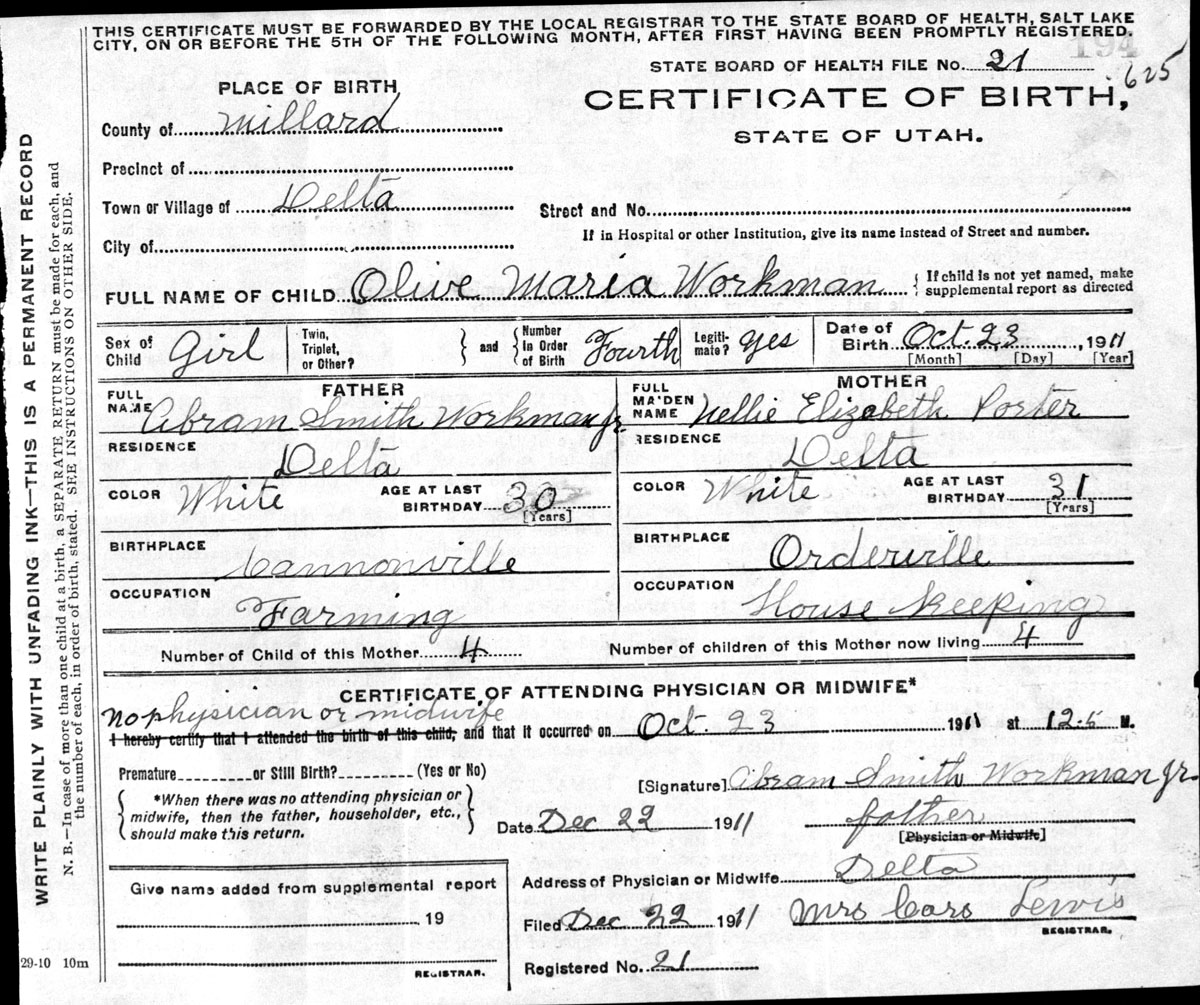 THIS CERTIFICATE MUST BE FORWARDED BY THE LOCAL REGISTRAR TO THE STATE BOARD OF HEALTH, SALT LAKE
CITY, ON OR BEFORE THE 5TH OF THE FOLLOWING MONTH, AFTER FIRST HAVING BEEN PROMPTLY REGISTERED.
194
STATE BOARD OF HEALTH FILE No. 21
625
PLACE OF BIRTH
CERTIFICATE OF BIRTH,
County of Millard
STATE OF UTAH.
Precinct of
Town or Village of Delta
Street and No.
City of
If in Hospital or other Institution, give its name instead of Street and number.
FULL NAME OF CHILD Olive Maria Workman
{ If child is not yet named, make
supplemental report as directed
Sex of
Child Girl
Twin,
Triplet,
or Other?
} and {
Number
in Order
of Birth Fourth
Legiti-
mate? yes
Date of
Birth Oct. 23, 1911
[Month] [Day] [Year]
FATHER
FULL
NAME Abram Smith Workman Jr
RESIDENCE Delta
COLOR White
AGE AT LAST
BIRTHDAY 30
[Years]
BIRTHPLACE Cannonville
OCCUPATION Farming
MOTHER
FULL
MAIDEN
NAME Nellie Elizabeth Porter
RESIDENCE Delta
COLOR White
AGE AT LAST
BIRTHDAY 31
[Years]
BIRTHPLACE Orderville
OCCUPATION House Keeping
Number of Child of this Mother 4
Number of children of this Mother now living 4
CERTIFICATE OF ATTENDING PHYSICIAN OR MIDWIFE*
No physician or midwife
I hereby certify that I attended the birth of this child, and that it occurred on Oct. 23 1911 at 12.5 M.
Premature or Still Birth? (Yes or No)
[Signature] Abram Smith Workman Jr.
{ *When there was no attending physician or
midwife, then the father, householder, etc.,
should make this return. }
Date Dec 22 1911
father
[Physician or Midwife]
Give name added from supplemental report
19
REGISTRAR.
Address of Physician or Midwife Delta
Filed Dec 22 1911 Mrs Lewis
REGISTRAR.
Registered No. 21
29-10 10m
WRITE PLAINLY WITH UNFADING INK—THIS IS A PERMANENT RECORD
N. B.—In case of more than one child at a birth, a SEPARATE RETURN must be made for each, and
the number of each, in order of birth, stated. SEE INSTRUCTIONS ON OTHER SIDE.